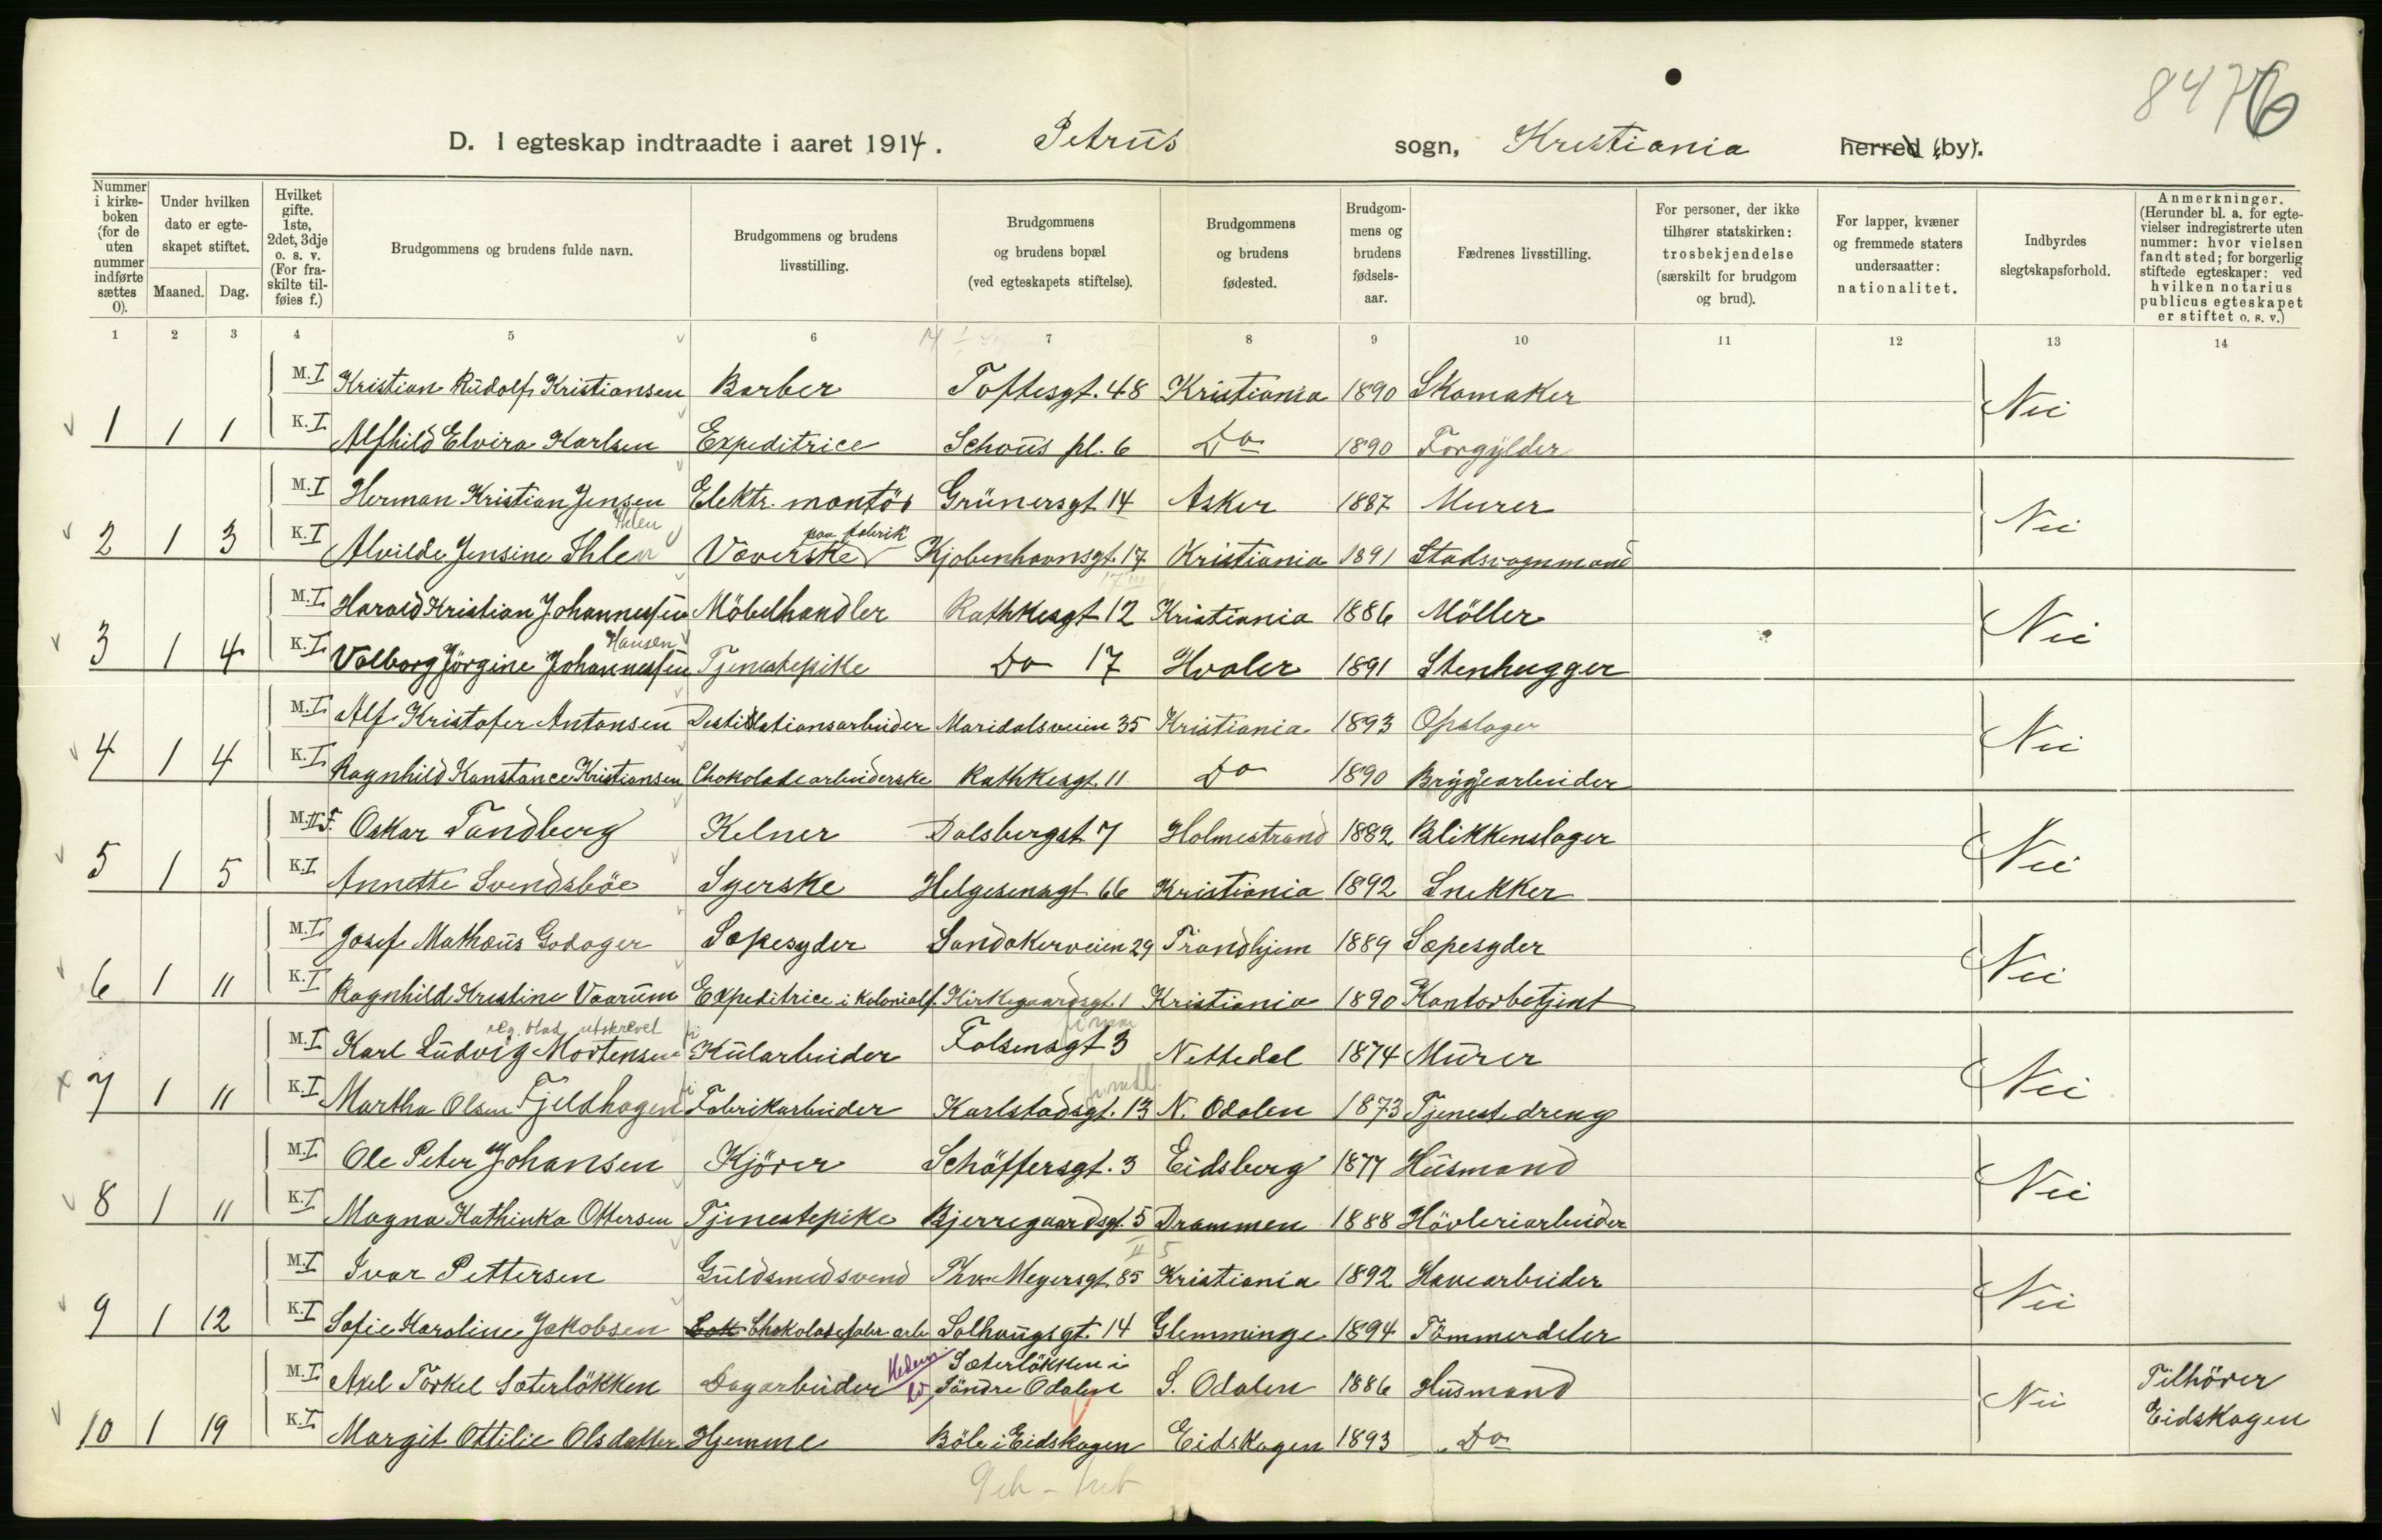 8476
D. I egteskap indtraadte i aaret 1914. Petrus sogn, Kristiania herred (by).
Nummer i kirkeboken (for de uten nummer indførte sættes 0). Under hvilken dato er egteskapet stiftet. Maaned. Dag. Hvilket gifte. 1ste, 2det, 3dje o. s. v. (For fraskilte tilføies f.) Brudgommens og brudens fulde navn. Brudgommens og brudens livsstilling. Brudgommens og brudens bopæl (ved egteskapets stiftelse). Brudgommens og brudens fødested. Brudgommens og brudens fødselsaar. Fædrenes livsstilling. For personer, der ikke tilhører statskirken: trosbekjendelse (særskilt for brudgom og brud). For lapper, kvæner og fremmede staters undersaatter: nationalitet. Indbyrdes slegtskapsforhold. Anmerkninger. (Herunder bl. a. for egtevielser indregistrerte uten nummer: hvor vielsen fandt sted; for borgerlig stiftede egteskaper: ved hvilken notarius publicus egteskapet er stiftet o. s. v.)
1 2 3 4 5 6 7 8 9 10 11 12 13 14
M. I Kristian Rudolf Kristiansen Barber Toftesgt. 48 Kristiania 1890 Skomaker Nei
1 1 1 K. I Alfhild Elvira Karlsen Expeditrice Schous pl. 6 Do 1890 Forgylder
M. I Herman Kristian Jensen Elektr. montör Grünersgt 14 Asker 1887 Murer Nei
Ihlen paa fabrik
2 1 3 K. I Alvilde Jensine Ihlen Væverske Kjøbenhavnsgt. 17 Kristiania 1891 Stadsvognmand
M. I Harald Kristian Johannessen Möbelhandler Rathkesgt 12 Kristiania 1886 Möller Nei
Hansen
3 1 4 K. I Valborg Jörgine Johannessen Tjenestepike Do 17 Hvaler 1891 Stenhugger
M. I Alf Kristofer Antonsen Destillationsarbeider Maridalsveien 35 Kristiania 1893 Opslager Nei
4 1 4 K. I Ragnhild Konstance Kristiansen Chokoladearbeiderske Rathkesgt. 11 Do 1890 Bryggearbeider
M. II F. Oskar Tandberg Kelner Dalsbergst. 7 Holmestrand 1882 Blikkenslager Nei
5 1 5 K. I Annette Svendsböe Syerske Helgesensgt 66 Kristiania 1892 Snekker
M. I Josef Mathæus Godager Sæpesyder Sandakerveien 29 Trondhjem 1889 Sæpesyder Nei
6 1 11 K. I Ragnhild Kristine Vaarum Expeditrice i kolonialf. Kirkegaardsgt. 1 Kristiania 1890 Kontorbetjent
reg. blad utskrevet
M. I Karl Ludvig Mortensen Kularbeider Falsensgt 3 Nittedal 1874 Murer Nei
7 1 11 K. I Martha Olsen Fjeldhagen Fabrikarbeider Karlstadsgt. 13 N. Odalen 1873 Tjenestedreng
M. I Ole Peter Johansen Kjörer Schöffersgt. 3 Eidsberg 1877 Husmand Nei
8 1 11 K. I Magna Kathinka Ottersen Tjenestepike Bjerregaardsgt. 5 Drammen 1888 Hövleriarbeider
M. I Ivar Pettersen Guldsmedsvend Thv. Meyersgt. 85 Kristiania 1892 Havearbeider Nei
9 1 12 K. I Sofie Karoline Jakobsen Chokoladefabr arb Solhaugsgt. 14 Glemminge 1894 Tömmerdeler
Hedem. Sæterlökken i
M. I Axel Torkel Sæterlökken Dagarbeider Söndre Odalen S. Odalen 1886 Husmand Nei Tilhörer
10 1 19 K. I Margit Ottilie Olsdatter Hjemme Böle i Eidskogen Eidskogen 1893 Do Eidskogen